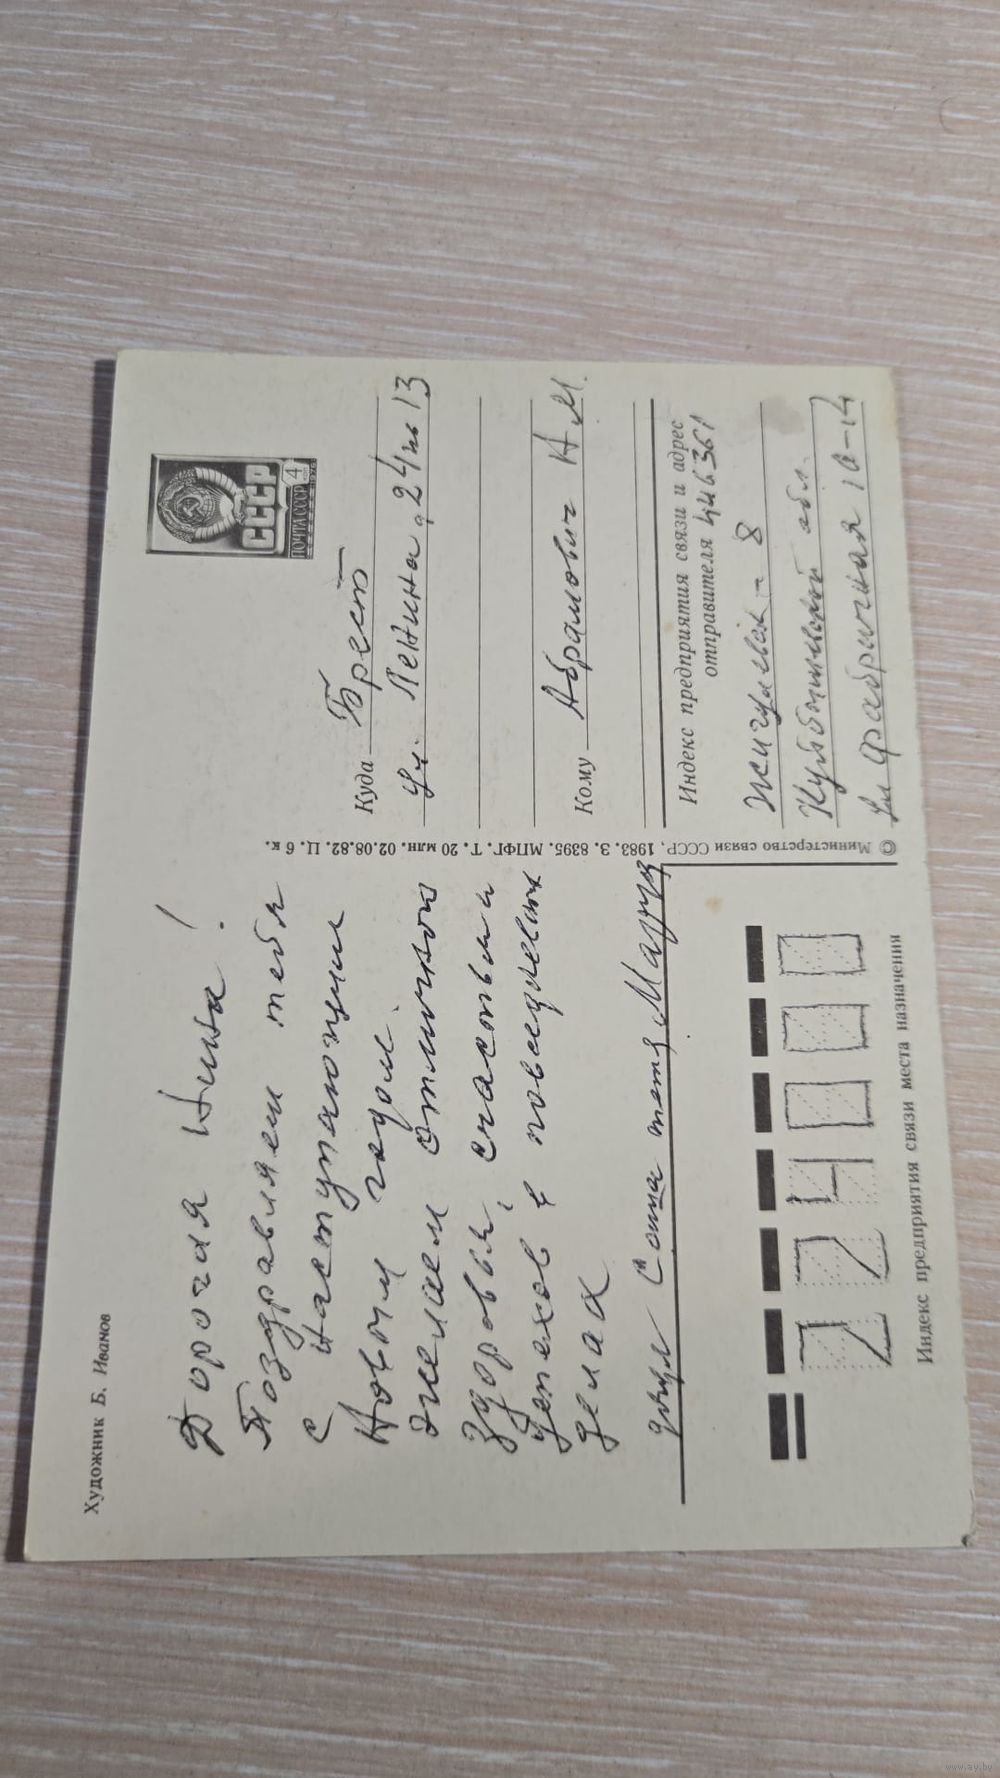 Художник Б. Иванов
Дорогая Нина!
Поздравляем тебя
с наступающим
Новым годом.
Желаем отличного
здоровья, счастья и
успехов в повседневных
делах
дядя Саша тетя Маруся
© Министерство связи СССР, 1983. З. 8395. МПФГ. Т. 20 млн. 02.08.82. Ц. 6 к.
СССР
ПОЧТА СССР 4
1976
Куда Брест
ул. Ленина д 24 кв 13
Кому Абрамович Н М.
Индекс предприятия связи и адрес
отправителя 446361
Жигулевск-8
Куйбышевской обл.
ул Фабричная 10-14
224000
Индекс предприятия связи места назначения
www.ay.by